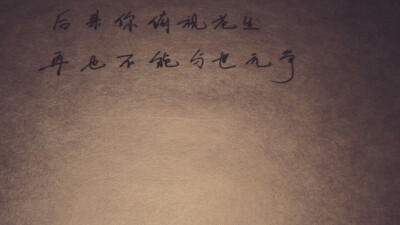 后来你俯视苍生
再也不能与世无争